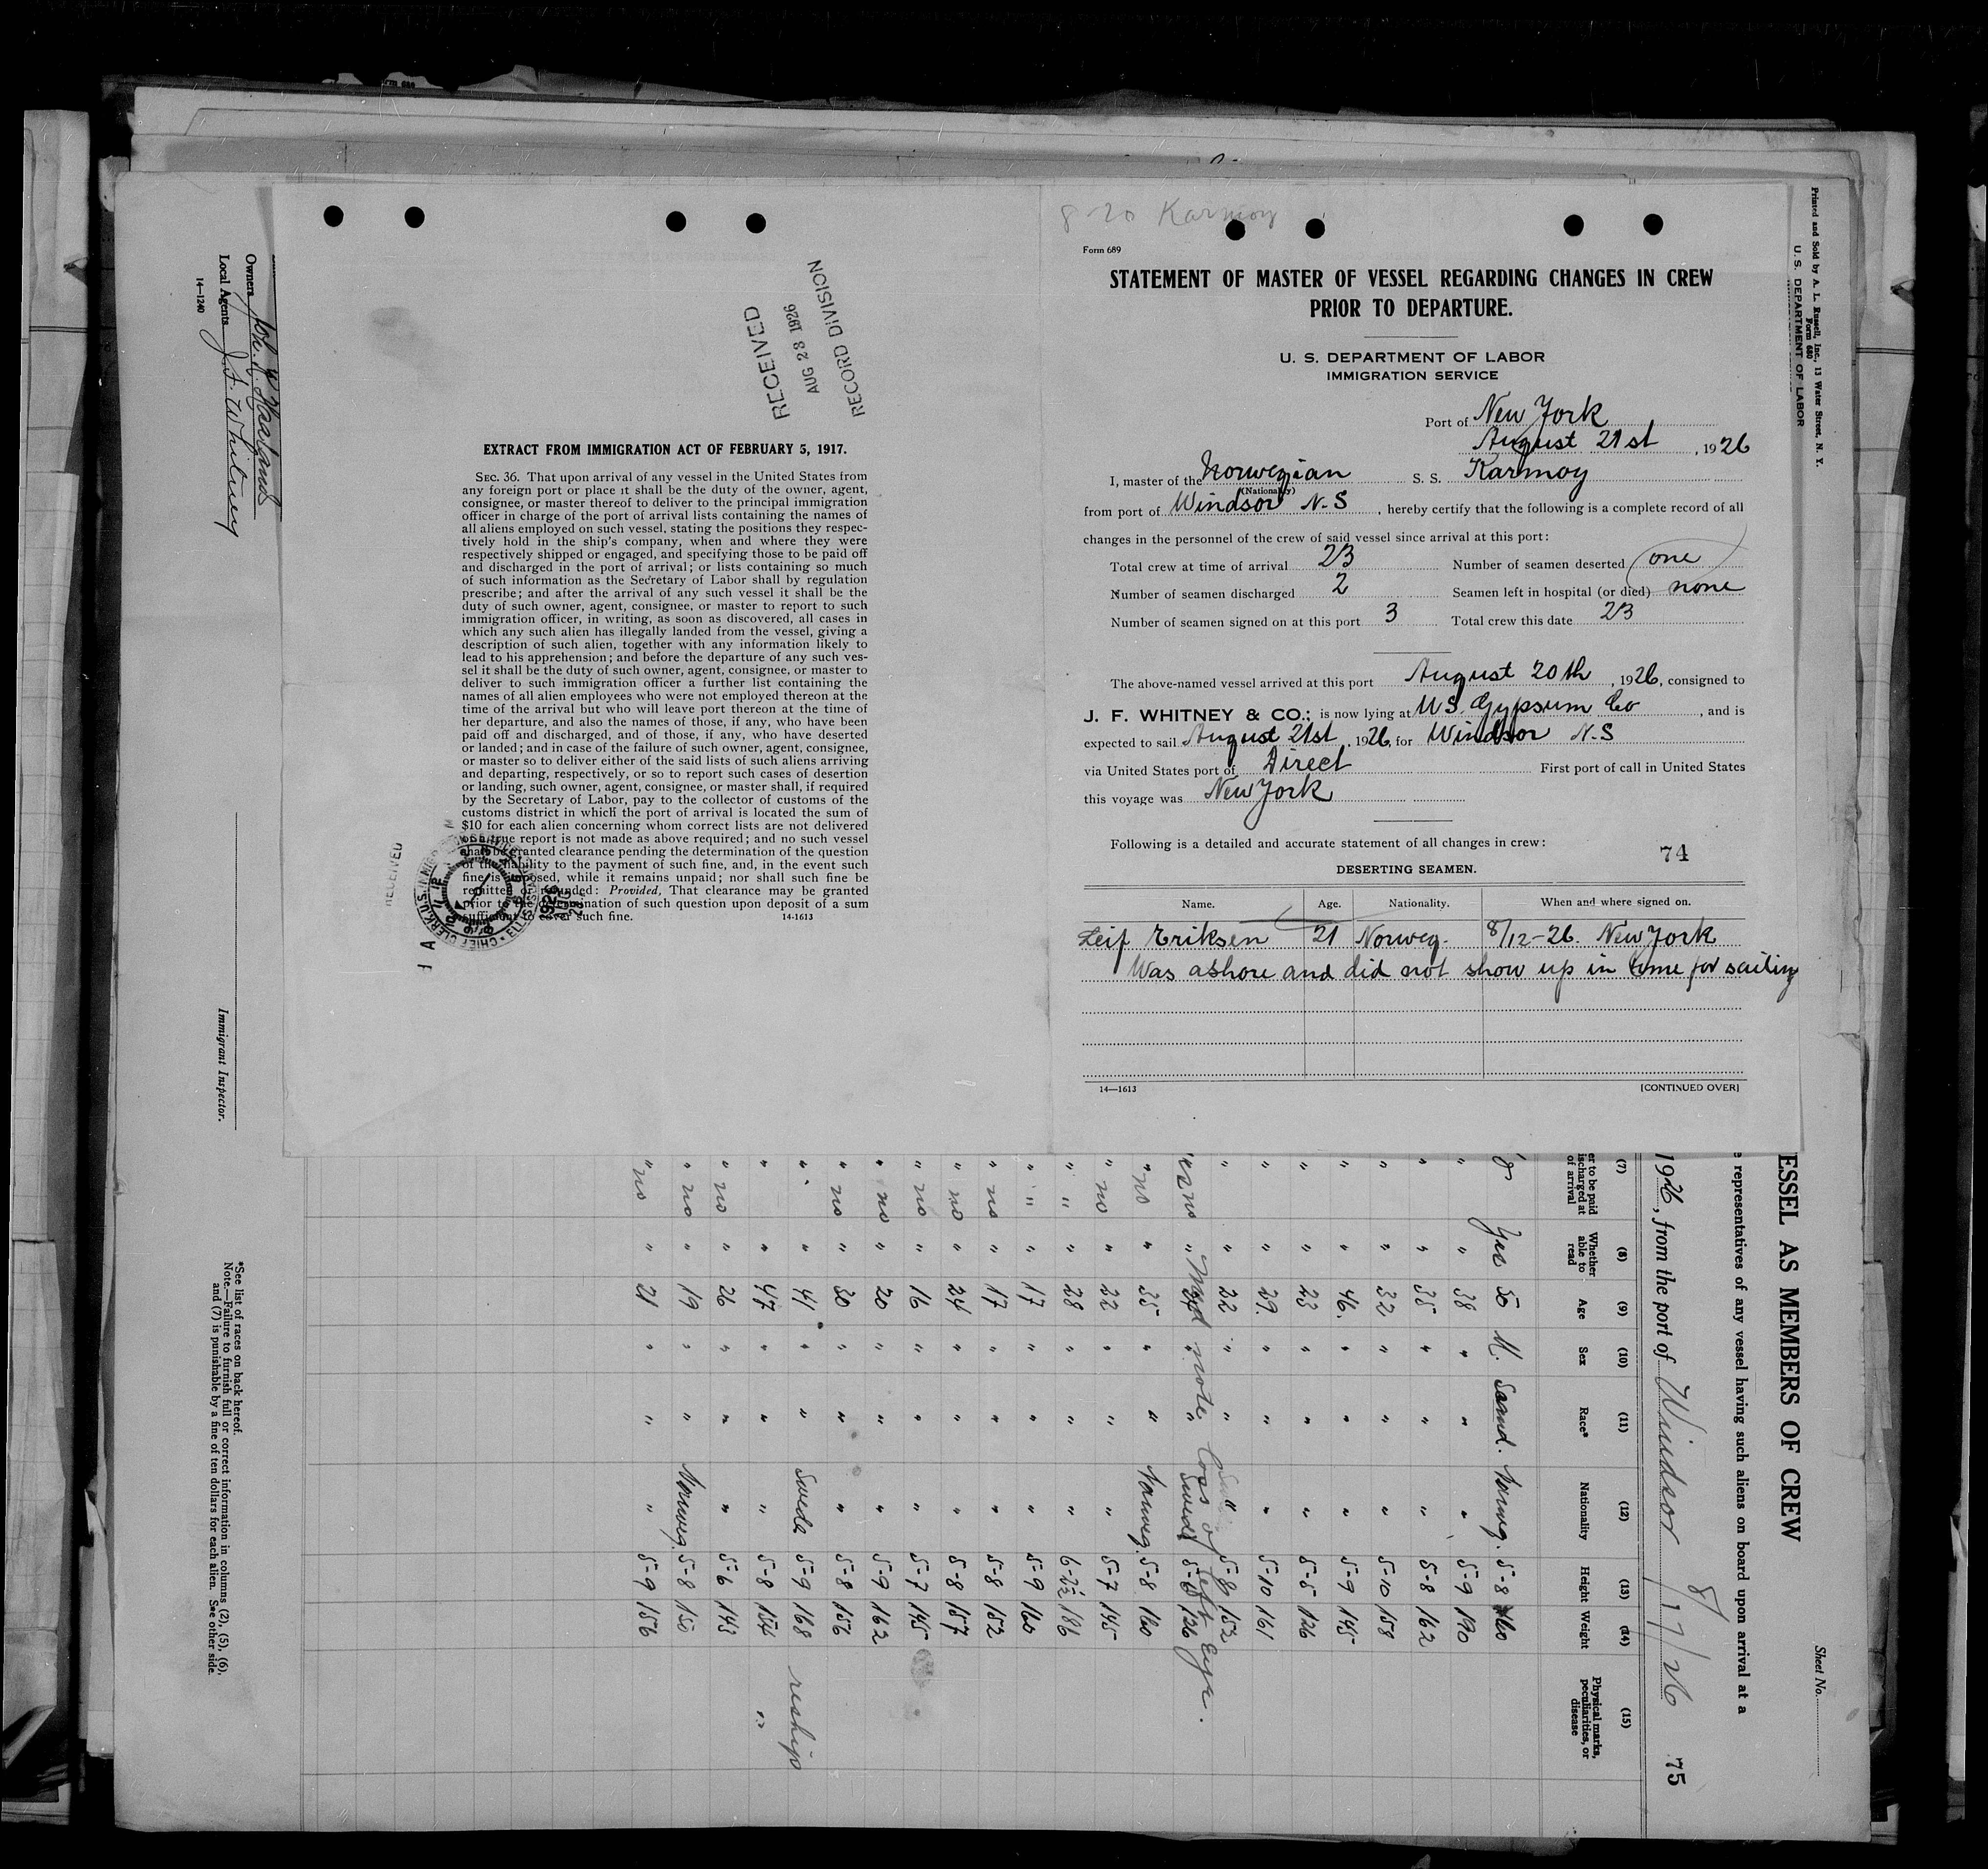 8-20 Karmoy
Form 689
STATEMENT OF MASTER OF VESSEL REGARDING CHANGES IN CREW
PRIOR TO DEPARTURE.
U. S. DEPARTMENT OF LABOR
IMMIGRATION SERVICE
Port of New York
August 21st, 1926
I, master of the Norwegian S. S. Karmoy
(Nationality)
from port of Windsor N.S, hereby certify that the following is a complete record of all
changes in the personnel of the crew of said vessel since arrival at this port:
Total crew at time of arrival 23 Number of seamen deserted one
Number of seamen discharged 2 Seamen left in hospital (or died) none
Number of seamen signed on at this port 3 Total crew this date 23
The above-named vessel arrived at this port August 20th, 1926, consigned to
J. F. WHITNEY & CO.; is now lying at U.S. Gypsum Co, and is
expected to sail August 21st, 1926, for Windsor N.S
via United States port of Direct First port of call in United States
this voyage was New York
Following is a detailed and accurate statement of all changes in crew:
74
DESERTING SEAMEN.
Name. Age. Nationality. When and where signed on.
Leif Eriksen 21 Norweg. 8/12-26. New York
Was ashore and did not show up in time for sailing
14—1613 [CONTINUED OVER]
RECEIVED
AUG 23 1926
RECORD DIVISION
EXTRACT FROM IMMIGRATION ACT OF FEBRUARY 5, 1917.
SEC. 36. That upon arrival of any vessel in the United States from
any foreign port or place it shall be the duty of the owner, agent,
consignee, or master thereof to deliver to the principal immigration
officer in charge of the port of arrival lists containing the names of
all aliens employed on such vessel, stating the positions they respec-
tively hold in the ship's company, when and where they were
respectively shipped or engaged, and specifying those to be paid off
and discharged in the port of arrival; or lists containing so much
of such information as the Secretary of Labor shall by regulation
prescribe; and after the arrival of any such vessel it shall be the
duty of such owner, agent, consignee, or master to report to such
immigration officer, in writing, as soon as discovered, all cases in
which any such alien has illegally landed from the vessel, giving a
description of such alien, together with any information likely to
lead to his apprehension; and before the departure of any such ves-
sel it shall be the duty of such owner, agent, consignee, or master to
deliver to such immigration officer a further list containing the
names of all alien employees who were not employed thereon at the
time of the arrival but who will leave port thereon at the time of
her departure, and also the names of those, if any, who have been
paid off and discharged, and of those, if any, who have deserted
or landed; and in case of the failure of such owner, agent, consignee,
or master so to deliver either of the said lists of such aliens arriving
and departing, respectively, or so to report such cases of desertion
or landing, such owner, agent, consignee, or master shall, if required
by the Secretary of Labor, pay to the collector of customs of the
customs district in which the port of arrival is located the sum of
$10 for each alien concerning whom correct lists are not delivered
or a true report is not made as above required; and no such vessel
shall be granted clearance pending the determination of the question
of the liability to the payment of such fine, and, in the event such
fine is imposed, while it remains unpaid; nor shall such fine be
remitted or refunded: Provided, That clearance may be granted
prior to the determination of such question upon deposit of a sum
sufficient to cover such fine. 14-1613
RECEIVED
1926
Printed and Sold by A. L. Russell, Inc., 13 Water Street, N. Y.
Form 680
U. S. DEPARTMENT OF LABOR
Sheet No.
ESSEL AS MEMBERS OF CREW
e representatives of any vessel having such aliens on board upon arrival at a
1926, from the port of Windsor 8/17/26 75
(7) (8) (9) (10) (11) (12) (13) (14) (15)
er to be paid ischarged at of arrival Whether able to read Age Sex Race* Nationality Height Weight Physical marks, peculiarities, or disease
Yes 50 M. Scand. Norweg. 5-8 160
" " 38 " " " 5-9 190
" " 35 " " " 5-8 162
" " 32 " " " 5-10 158
" " 46 " " " 5-9 145
" " 23 " " " 5-5 126
" " 29 " " " 5-10 161
" " 22 " " " 5-8 152
no " Swede 126
Med note loss of left Eye.
" no " 35 " " Norweg. 5-8 160
" no " 22 " " " 5-7 145
" " " 28 " " " 6-2½ 186
" " " 17 " " " 5-9 160
" no " 17 " " " 5-8 152
" no " 24 " " " 5-8 157
" no " 16 " " " 5-7 145
" no " 20 " " " 5-9 162
" no " 30 " " " 5-8 156
" " 41 " " Swede 5-9 168 reship
" " 47 " " " 5-8 154 "
" no " 26 " " " 5-6 143
" no " 19 " " Norweg. 5-8 150
" no " 21 " " " 5-9 156
Owners
Local Agents J. F. Whitney
14—1240
Immigrant Inspector.
*See list of races on back hereof.
Note.—Failure to furnish full or correct information in columns (2), (5), (6),
and (7) is punishable by a fine of ten dollars for each alien. See other side.